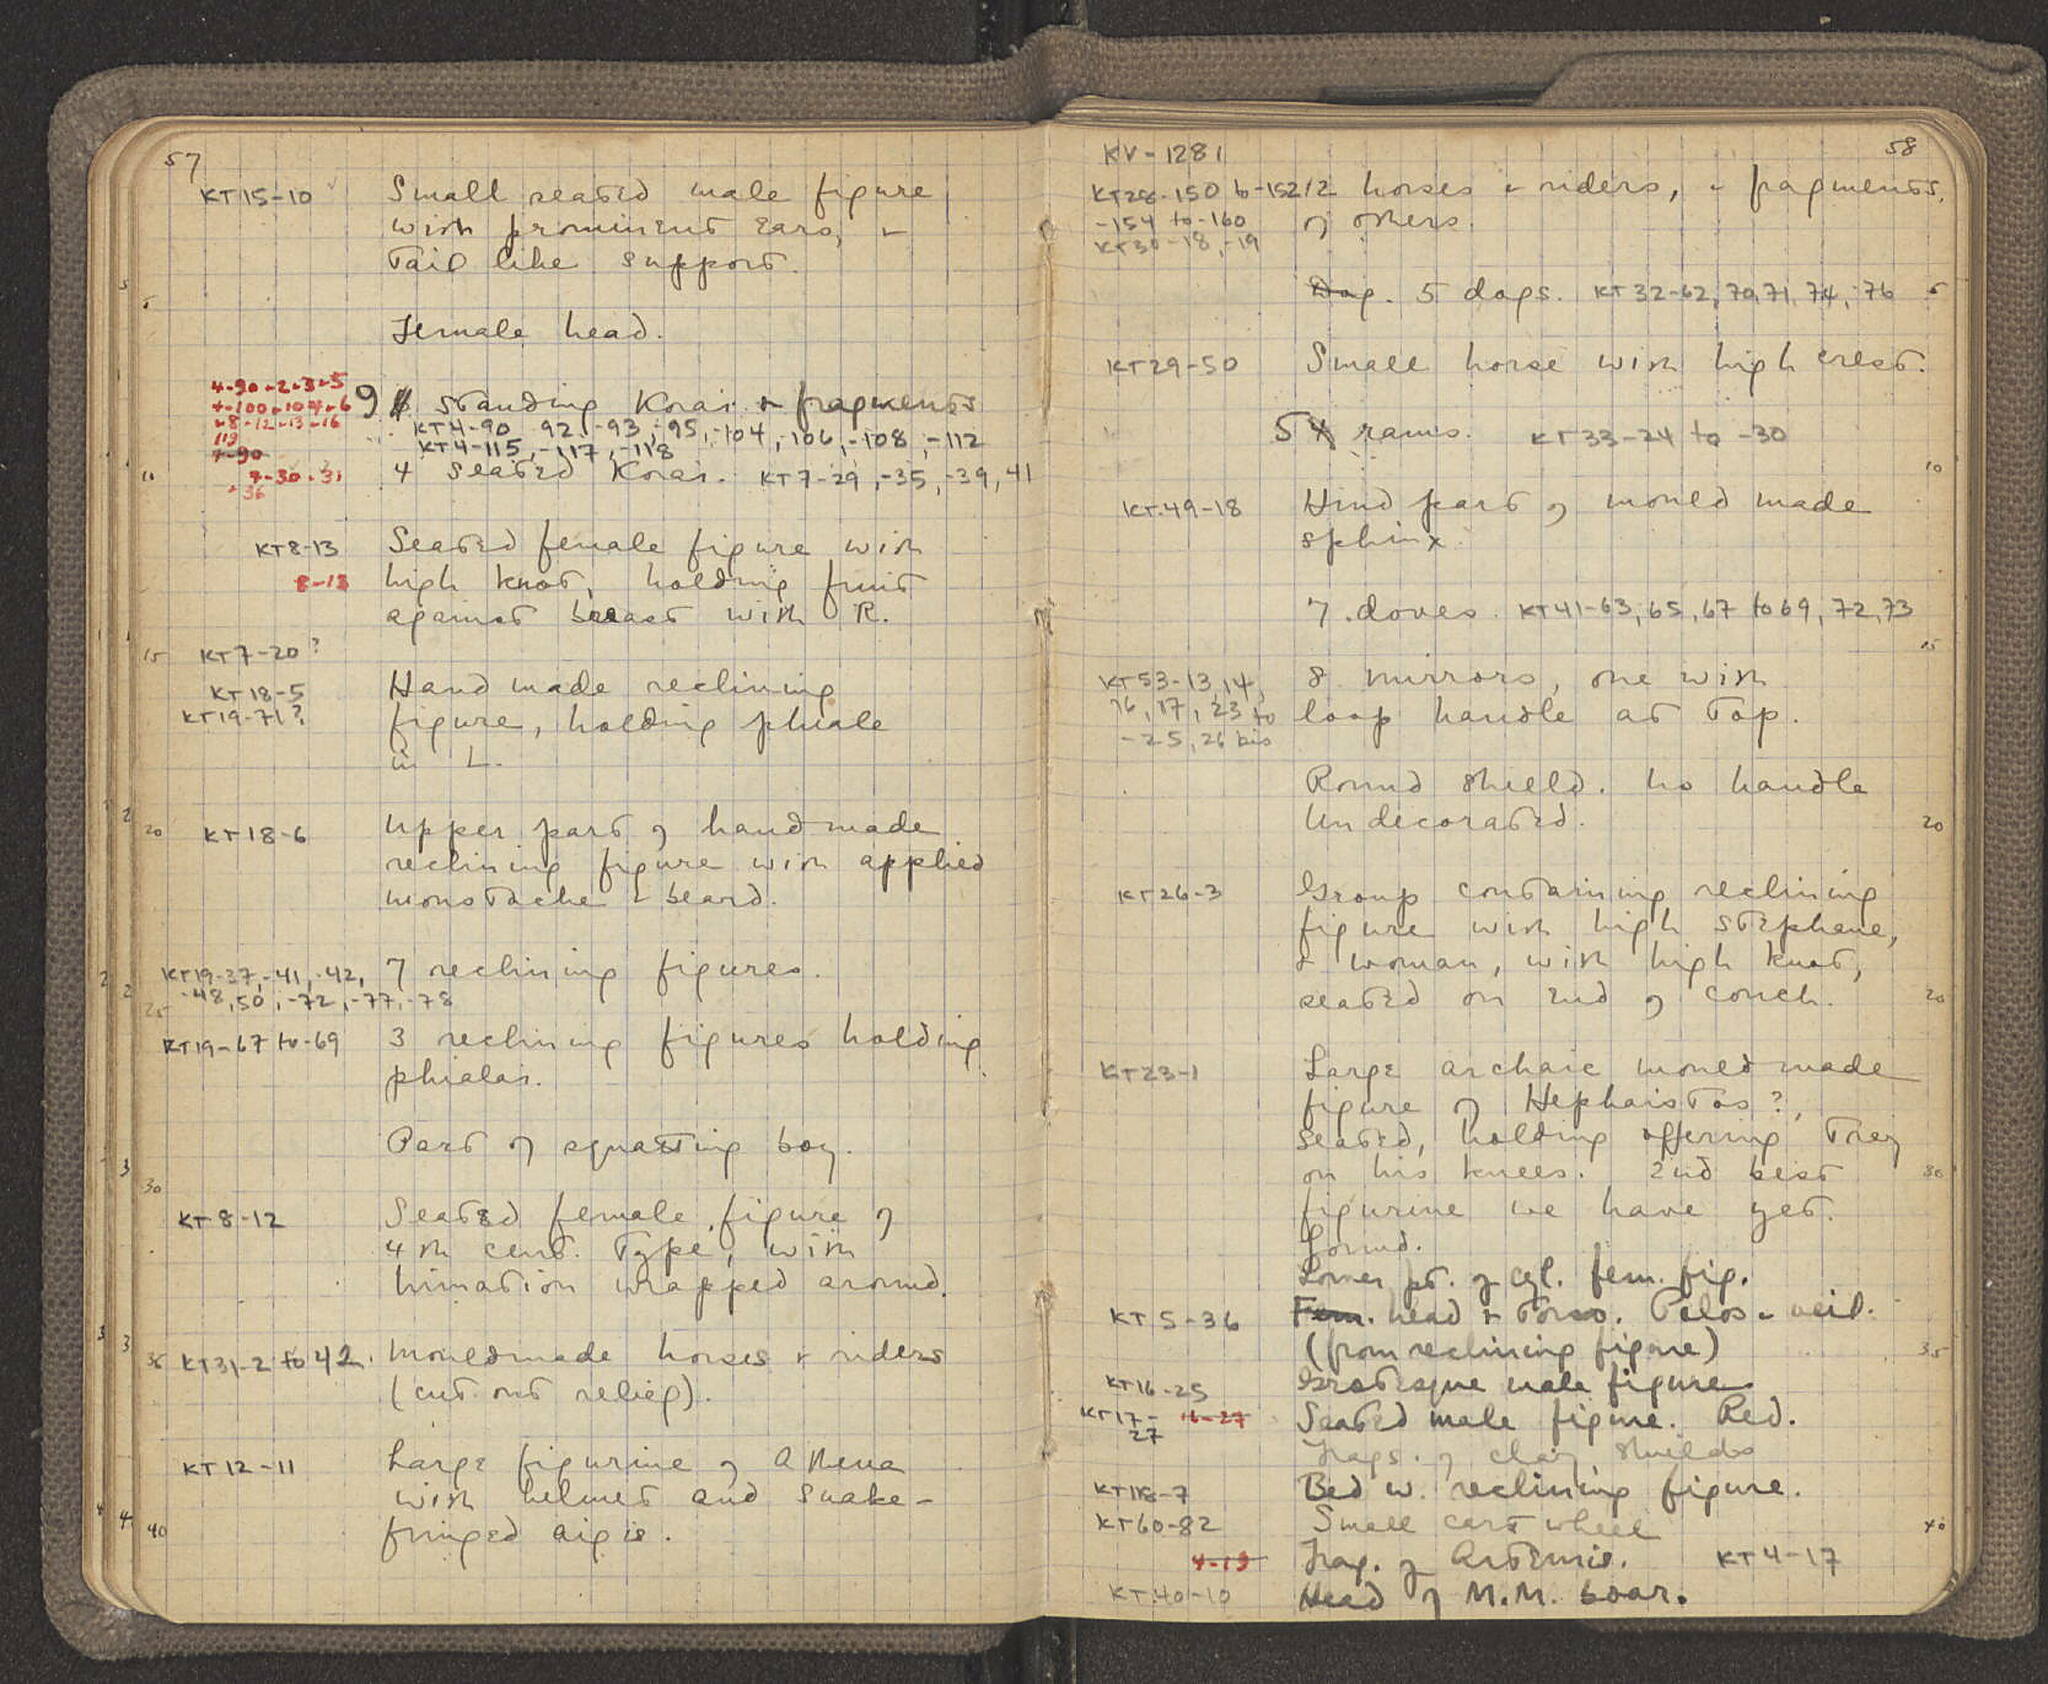 57
KT15-10 Small seated male figure
with prominent ears, &
tail like support.
5
Female head.
4-90-2-3-5
4-100-104-6 9 standing Korai & fragments
-8-12-13-16 KT4-90 92, -93, -95, -104, -106, -108, -112
119 KT4-115, -117, -118
4-90
10 7-30-31 4 seated Korai. KT7-29, -35, -39, 41
-36
KT8-13 Seated female figure with
8-13 high knot, holding fruit
against breast with R.
15 KT7-20?
KT18-5 Hand made reclining
KT19-71? figure, holding phiale
in L.
20 KT18-6 Upper part of hand made
reclining figure with applied
moustache & beard.
KT19-37, -41, -42, 7 reclining figures.
25 -48, 50, -72, -77, -78
KT19-67 to -69 3 reclining figures holding
phialai.
Part of squatting boy.
30
KT8-12 Seated female figure of
4th cent. Type, with
himation wrapped around.
35 KT31-2 to 42. Mouldmade horses & riders
(cut out relief).
KT12-11 Large figurine of Athena
with helmet and snake-
40 fringed aigis.
KV-1281 58
KT28-150 to -152 12 horses & riders, & fragments
-154 to -160 of others.
KT30-18, -19
Dog. 5 dogs. KT32-62, 70, 71, 74, -76 5
KT29-50 Small horse with high crest.
5 4 rams. KT33-24 to -30
10
KT.49-18 Hind part of mould made
sphinx.
7 doves. KT41-63, 65, 67 to 69, 72, 73
15
KT53-13, 14, 8 mirrors, one with
16, 17, 23 to loop handle at top.
-25, 26 bis
Round shield. No handle
Undecorated. 20
KT26-3 Group containing reclining
figure with high stephane,
& woman, with high knot,
seated on end of couch. 20
KT23-1 Large archaic mould made
figure of Hephaistos?,
seated, holding offering tray
on his knees. 2nd best 30
figurine we have yet
found.
Lower pt. of cyl. fem. fig.
KT5-36 Fem. head & torso. Polos & veil.
(from reclining figure) 35
KT16-25 Grotesque male figure
KT17-27 16-27 Seated male figure. Red.
Frags. of clay shields
KT18-7 Bed w. reclining figure.
KT60-82 Small cart wheel 40
4-19 Frag. of Artemis. KT4-17
KT.40-10 Head of M.M. boar.